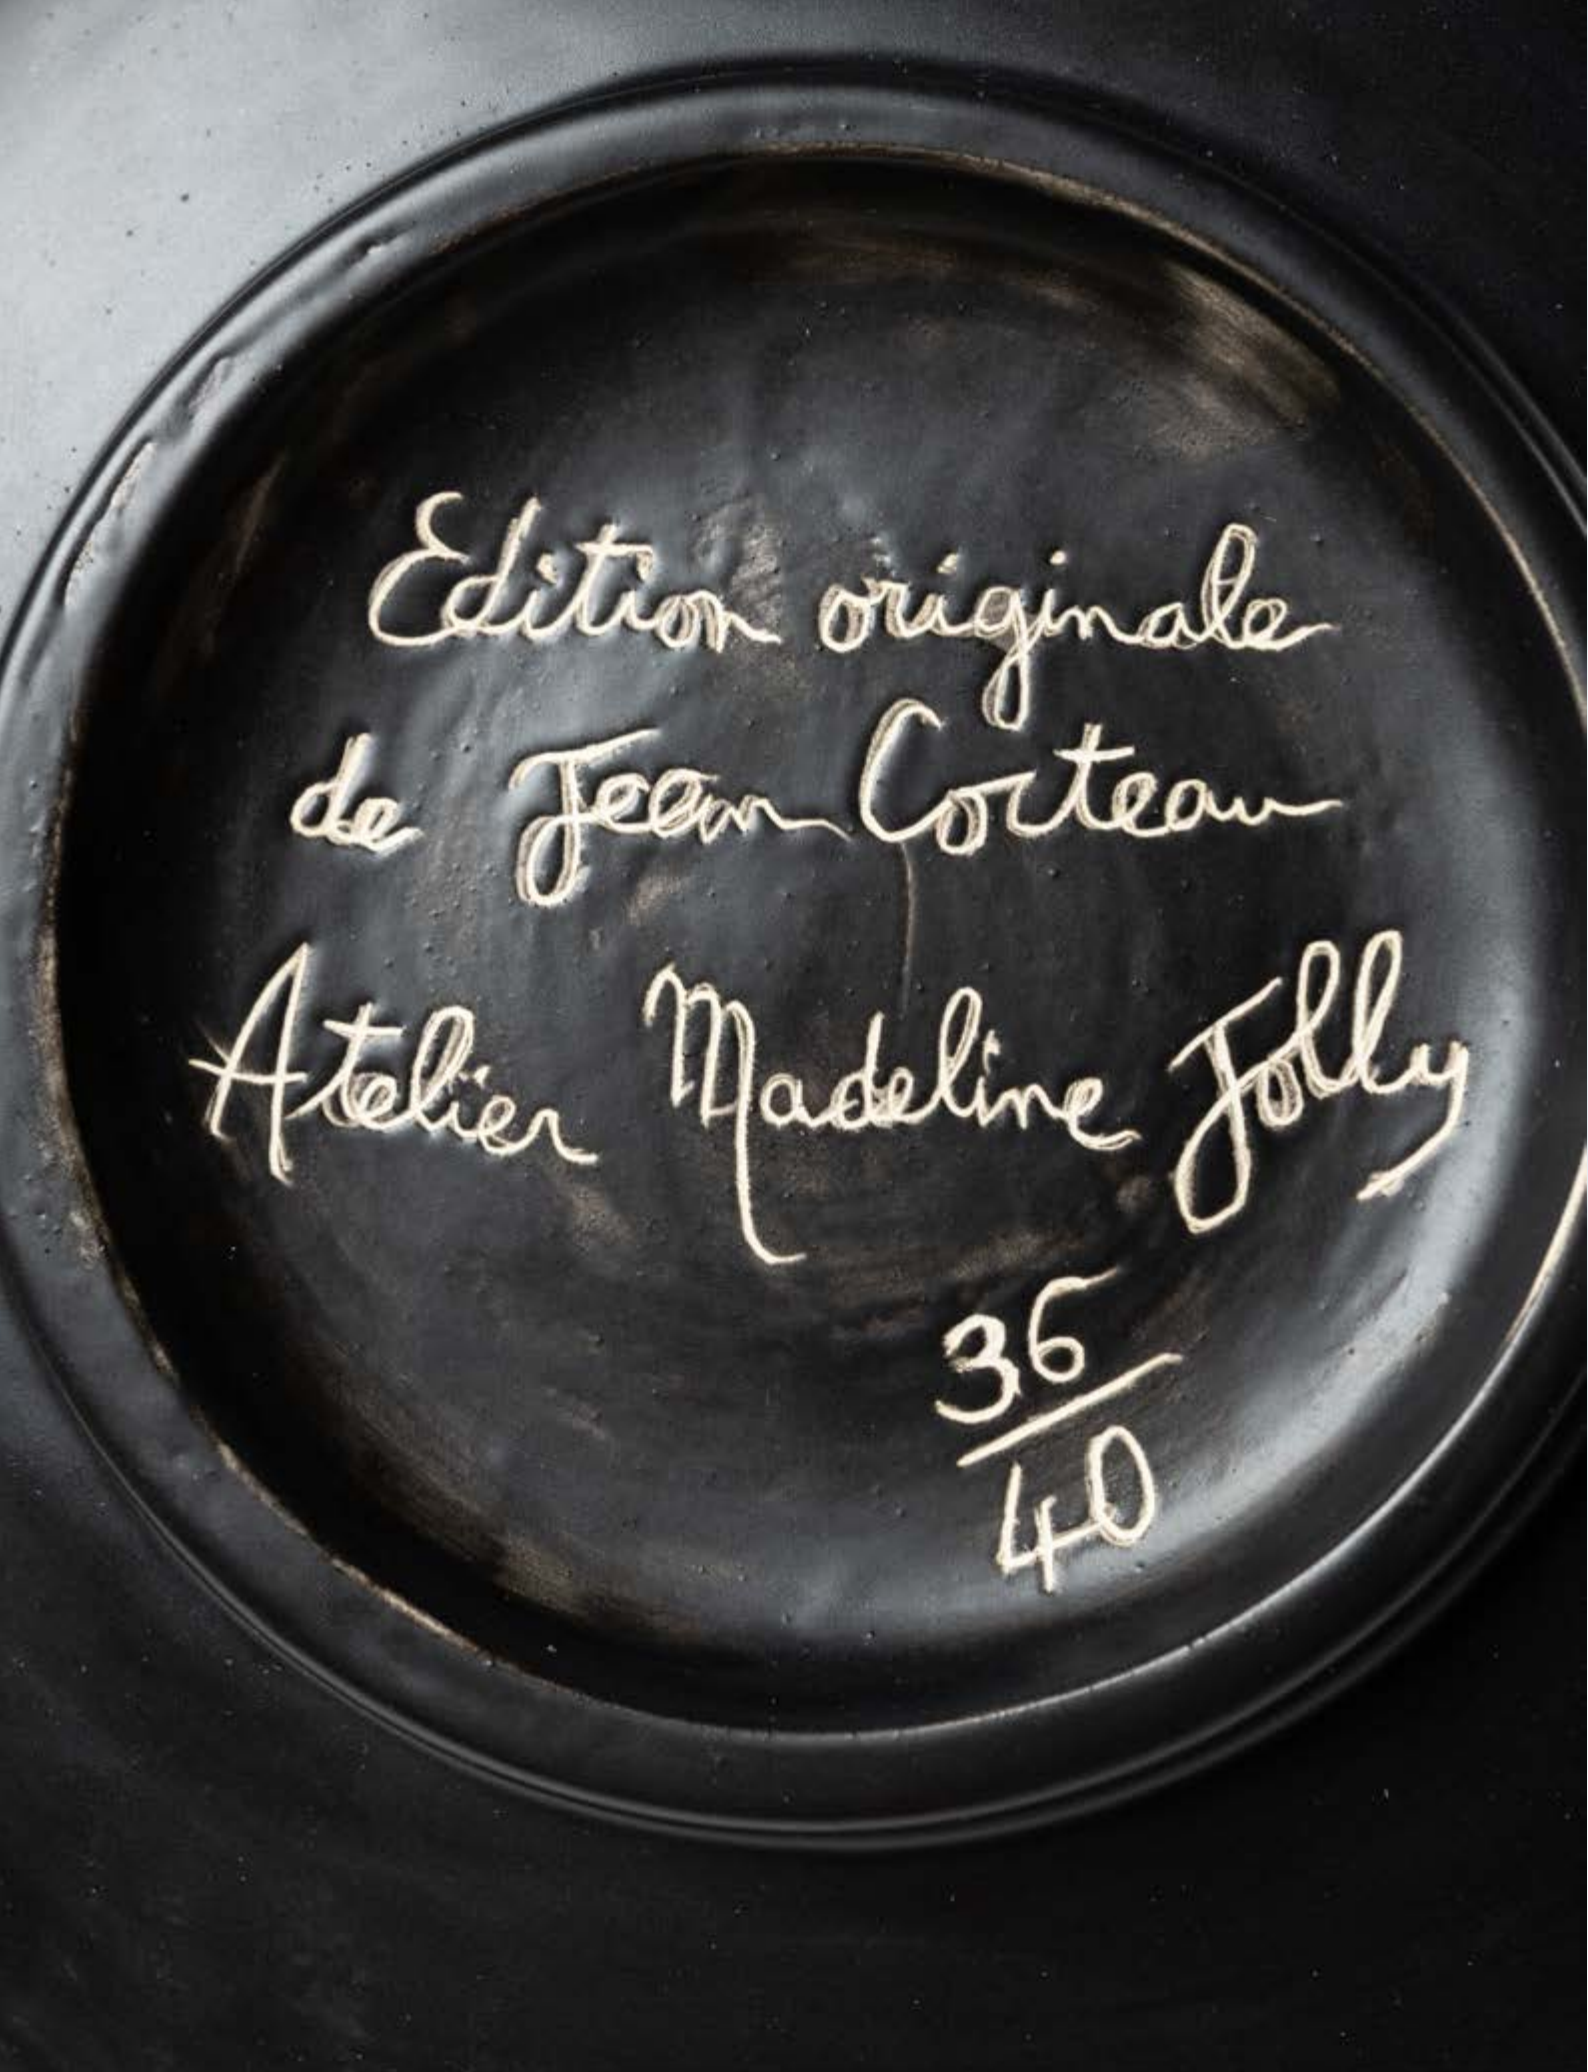 Edition originale
de Jean Cocteau
Atelier Madeline Jolly
36
40